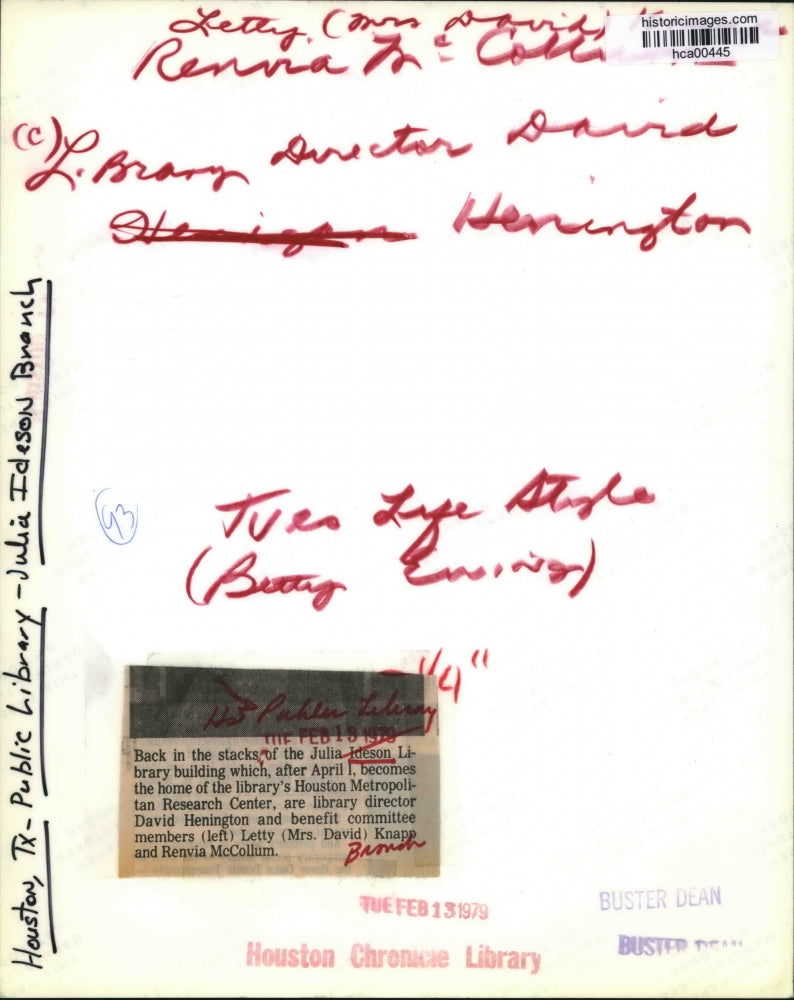 Letty (Mrs David)
historicimages.com
hca00445
Renvia Mc
(C) Library Director David
Henington Henington
Houston, Tx - Public Library - Julia Ideson Branch
93
Tues Life Style
(Betty Ewing)
1/4"
Public Library
TUE FEB 13 1979
Back in the stacks of the Julia Ideson Li-
brary building which, after April 1, becomes
the home of the library's Houston Metropoli-
tan Research Center, are library director
David Henington and benefit committee
members (left) Letty (Mrs. David) Knapp
and Renvia McCollum.
Branch
TUE FEB 13 1979
BUSTER DEAN
Houston Chronicle Library
BUSTER DEAN